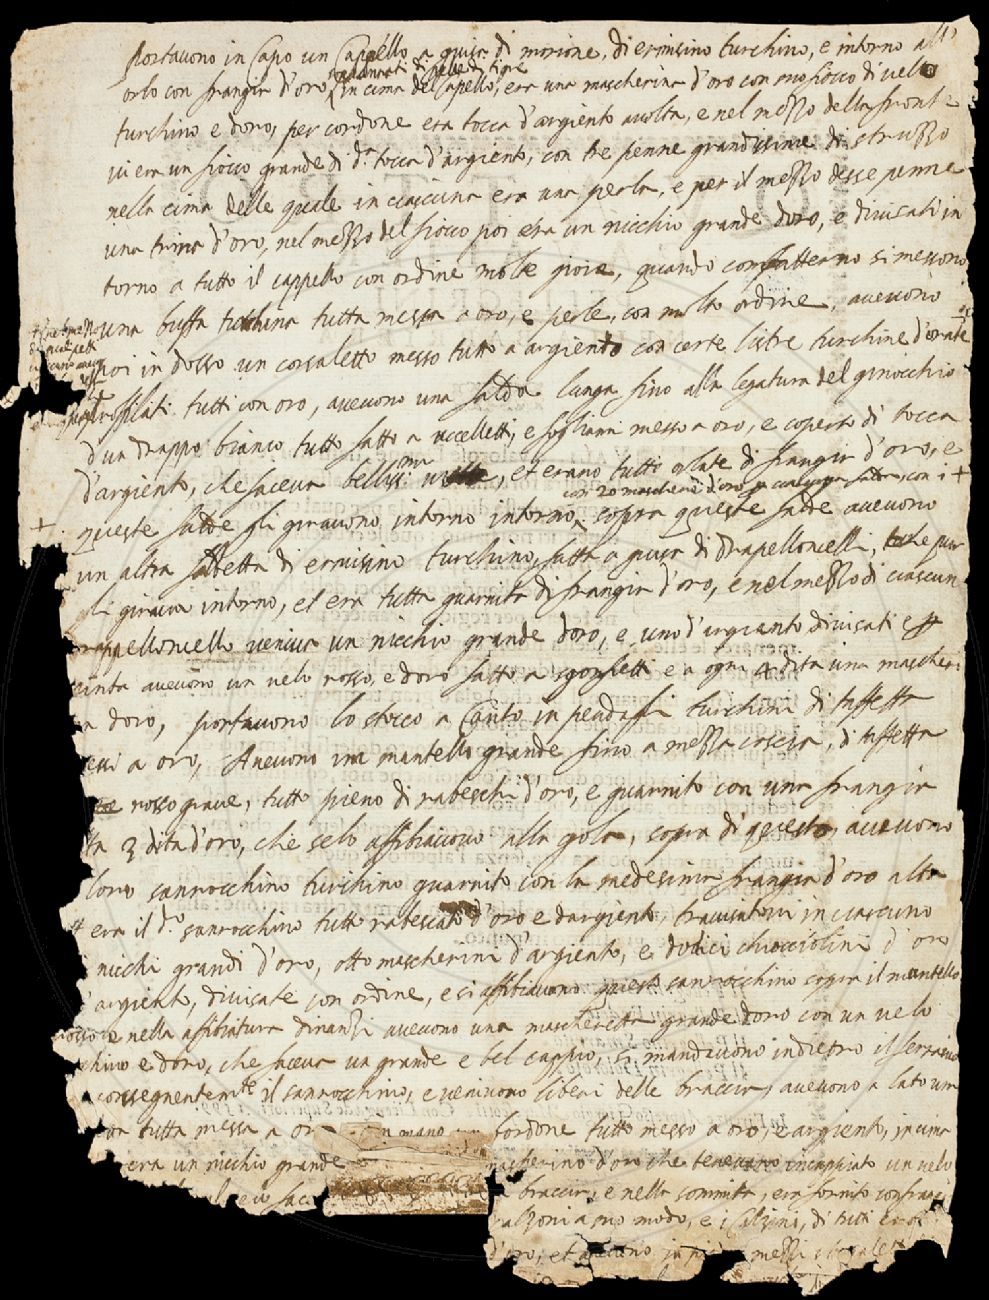 Portavono in Capo un Capello a guisa di morione, di ermisino turchino, e intorno all'
orlo con frangia d'oro, in cima del Capello, era una mascherina d'oro con suo fiocco di velo
turchino e d'oro, per cordone era tocca d'argiento avolta, e nel mezzo della fronte
vi era un fiocco grande di d.ª tocca d'argiento, con tre penne grandissime di struzzo
nella cima delle quale in ciascuna era una perla, e per il mezzo desse penne
una trina d'oro, nel mezzo del fiocco poi era un nicchio grande d'oro, e divisati in
torno a tutto il cappello con ordine molte gioie, quando combatterno si messono
una buffa turchina tutta messa a oro, e perle, con molto ordine, avevono
poi in dosso un corsaletto messo tutto a argiento con certe listre turchine d'orate
profilati tutti con oro, avevono una falda lunga fino alla legatura del ginocchio
d'un drappo bianco tutto fatto a uccelletti, e fogliami messo a oro, e coperto di tocca
d'argiento, che faceva bellis.ma, et erano tutte orlate di frangia d'oro, e
con 20 mascherine d'oro
queste falde gli giravono intorno intorno, sopra queste falde avevono
un altra faldetta di ermisino turchino, fatta a guisa di Drapelloncelli, che pur
gli girava intorno, et era tutta guarnita di frangia d'oro, e nel mezzo di ciascun
drappelloncello veniva un nicchio grande d'oro, e uno d'argianto divisati
cinta avevono un velo rosso, e d'oro fatto a sgonfietti e a ogni 4 dita una mascheri
na doro, portavono lo stocco a Canto in pendagli turchini di taffetta
messi a oro, Avevono un mantello grande fino a mezza coscia, di taffetta
rosso grave, tutto pieno di rabeschi d'oro, e guarnito con una frangia
alta 3 dita d'oro, che selo affibiavono alla gola, sopra di questo, avevono
loro sanrocchino turchino guarnito con la medesima frangia d'oro alta
era il d.º sanrocchino tutto rabescato d'oro e dargiento, travisatovi in ciascuno
nicchi grandi d'oro, otto mascherine d'argiento, e dodici chiocciolini d'oro
d'argiento, divisate con ordine, e si affibiavono questo sanrocchino sopra il mantello
rosso e nella affibiatura dinanzi avevono una mascheretta grande doro con un velo
turchino e d'oro, che faceva un grande e bel cappio, si mandavono indietro il ferraiuo
consequentem.te il sanrocchino, e venivono liberi delle braccia, avevono a lato una
tutta messa a oro in mano un bordone tutto messo a oro, e argiento, in cima
era un nicchio grande mascherino d'oro che tenevano incappiato un velo
braccia, e nella sommita, era fornito con frangi
calzoni a suo modo, e i Calzini, di tutti
d'oro, et avevono in piedi mezzi stivaletti